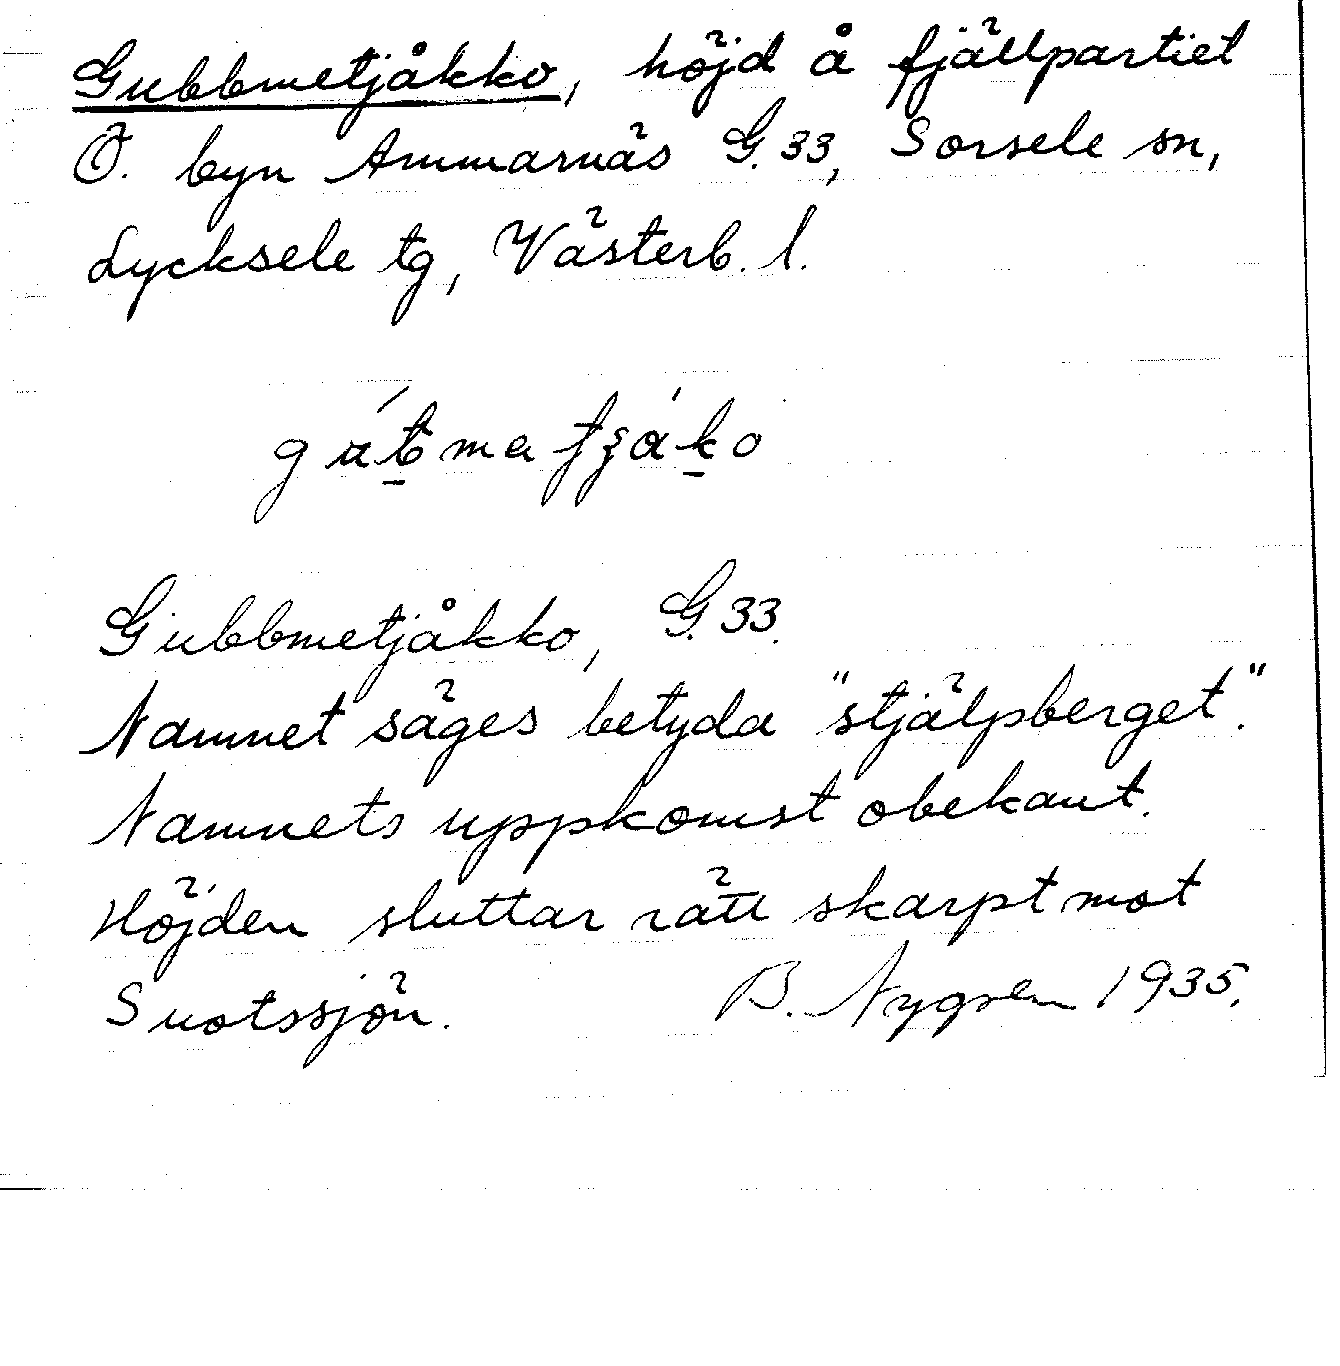 Gubbmetjåkko, höjd å fjällpartiet
Ö. byn Ammarnäs G.33, Sorsele sn,
Lycksele tg, Västerb. l.
Gubbmetjåkko, G.33.
Namnet säges betyda "stjälpberget".
Namnets uppkomst obekant.
Höjden sluttar rätt skarpt mot
Suotssjön. B. Nygren 1935.